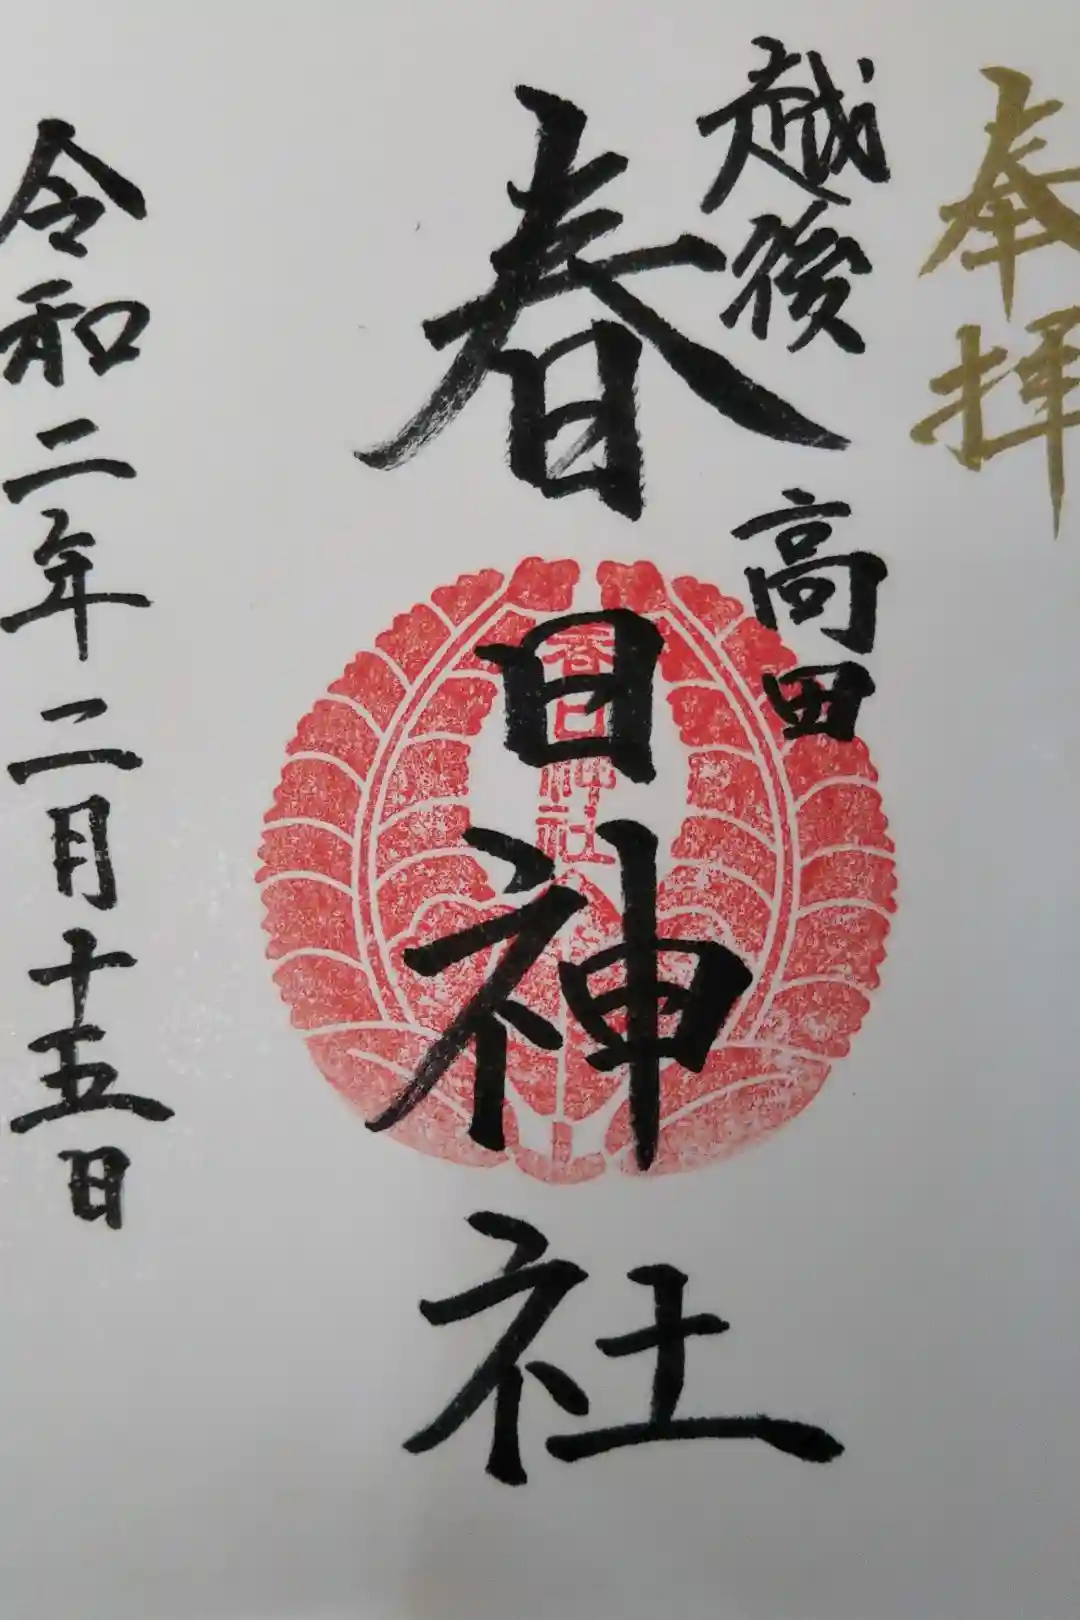 奉拝
越後 高田
春日神社
春日神社
令和二年二月十五日